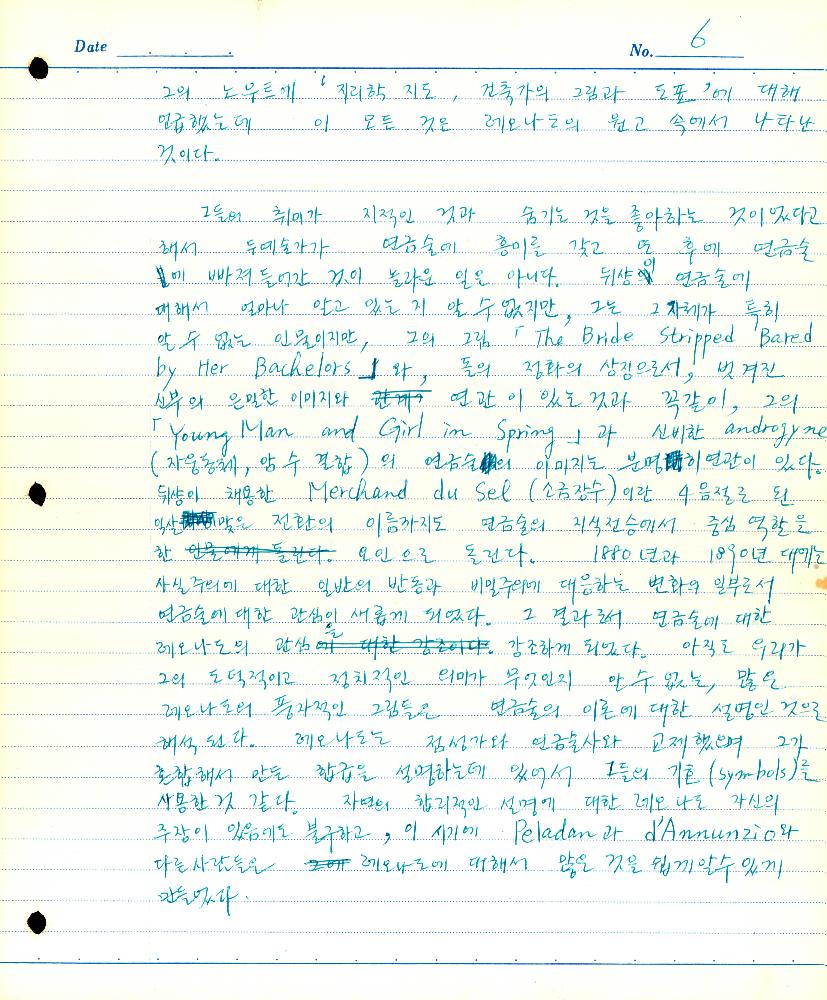 Date
No. 6
그의 노우트에 '지리학 지도, 건축가의 그림과 도표'에 대해
언급했는데 이 모든 것은 레오나도의 원고 속에서 나타난
것이다.
그들의 취미가 지적인 것과 숨기는 것을 좋아하는 것이었다고
해서 두예술가가 연금술에 흥미를 갖고 또 후에 연금술
에 빠져 들어간 것이 놀라운 일은 아니다. 뒤샹이 연금술에
대해서 얼마나 알고 있는 지 알 수 없지만, 그는 그 자체가 특히
알 수 없는 인물이지만, 그의 그림 「The Bride Stripped Bared
by Her Bachelors」와, 돌의 정화의 상징으로서, 벗겨진
신부의 은밀한 이미지와 연관이 있는 것과 꼭같이, 그의
「Young Man and Girl in Spring」과 신비한 androgyne
(자웅동체, 암수 결합)의 연금술의 이미지는 분명히 연관이 있다.
뒤샹이 채용한 Merchand du Sel (소금장수)이란 4음절로 된
익살맞은 전환의 이름까지도 연금술의 지식전승에서 중심 역할을
한 요인으로 돌린다. 1880년과 1890년 대에는
사실주의에 대한 일반의 반동과 비밀주의에 대응하는 변화의 일부로서
연금술에 대한 관심이 새롭게 되었다. 그 결과로써 연금술에 대한
레오나도의 관심을 강조하게 되었다. 아직도 우리가
그의 도덕적이고 정치적인 의미가 무엇인지 알 수 없는, 많은
레오나도의 풍자적인 그림들은 연금술의 이론에 대한 설명인 것으로
해석된다. 레오나도는 점성가와 연금술사와 교제했으며 그가
혼합해서 만든 합금을 설명하는데 있어서 그들의 기호(symbols)를
사용한 것 같다. 자연의 합리적인 설명에 대한 레오나도 자신의
주장이 있음에도 불구하고, 이 시기에 Peladan과 d'Annunzio와
다른 사람들은 레오나도에 대해서 많은 것을 쉽게 알수 있게
만들었다.